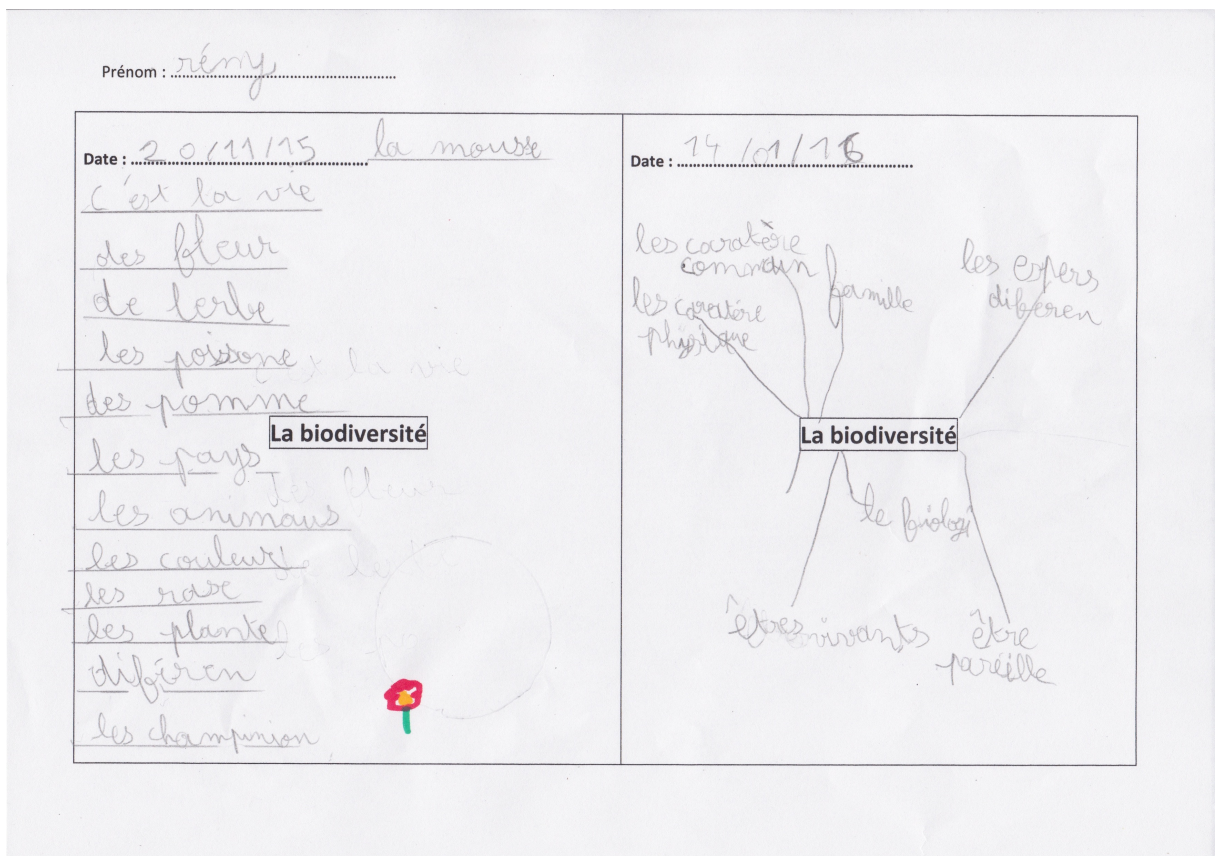 Prénom : rémy
Date : 20/11/15 la mousse
c'est la vie
des fleur
de lerbe
les poissone
des pomme
La biodiversité
les pays
les animaus
les couleur
les rose
les plante
diféren
les champinion
Date : 14/01/16
les caratère
commun
les caratère
physique
famille
les espers
diferen
La biodiversité
le biologi
êtres vivants
être
paréille